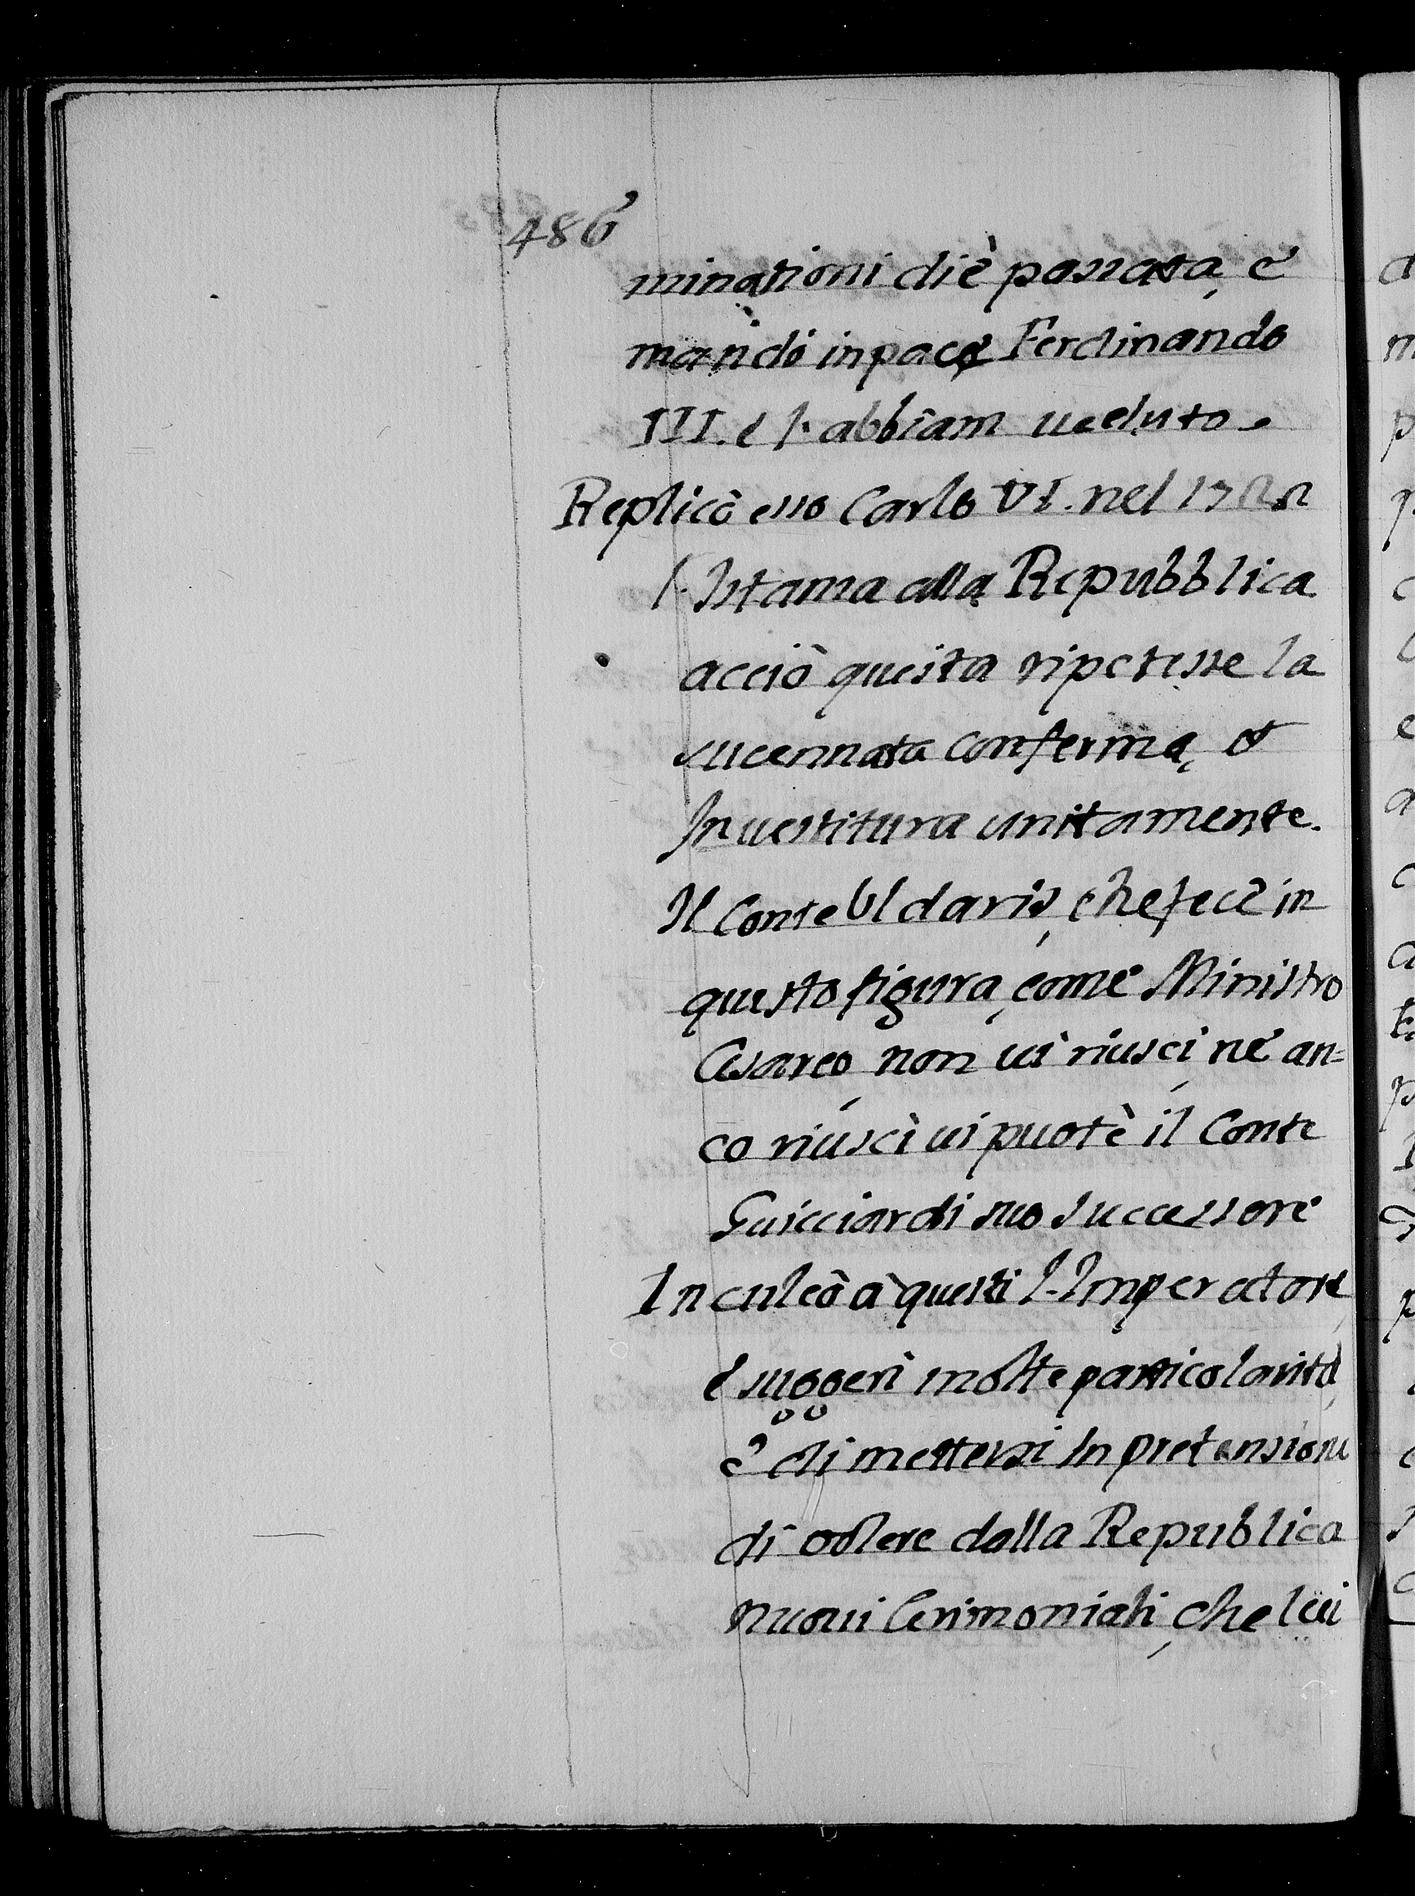 486
minationi diè passata, e
mandò in pace Ferdinando
III. e l'abbiam ueduto.
Replicò esso Carlo VI. nel 1722
l'Istanza alla Repubblica
acciò questa ripetesse la
succennata conferma, et
Inuestitura unitamente.
Il Conte Uldaris, che fece in
questo figura, come Ministro
Cesareo, non ui riuscì, ne an=
co riuscì ui puotè il Conte
Guicciardi suo successore
Inculcò à questi l'Imperatore,
e suggerì molte particolarità,
e di mettersi In pretensione
di uolere dalla Republica
nuoui Cerimoniali, che lui